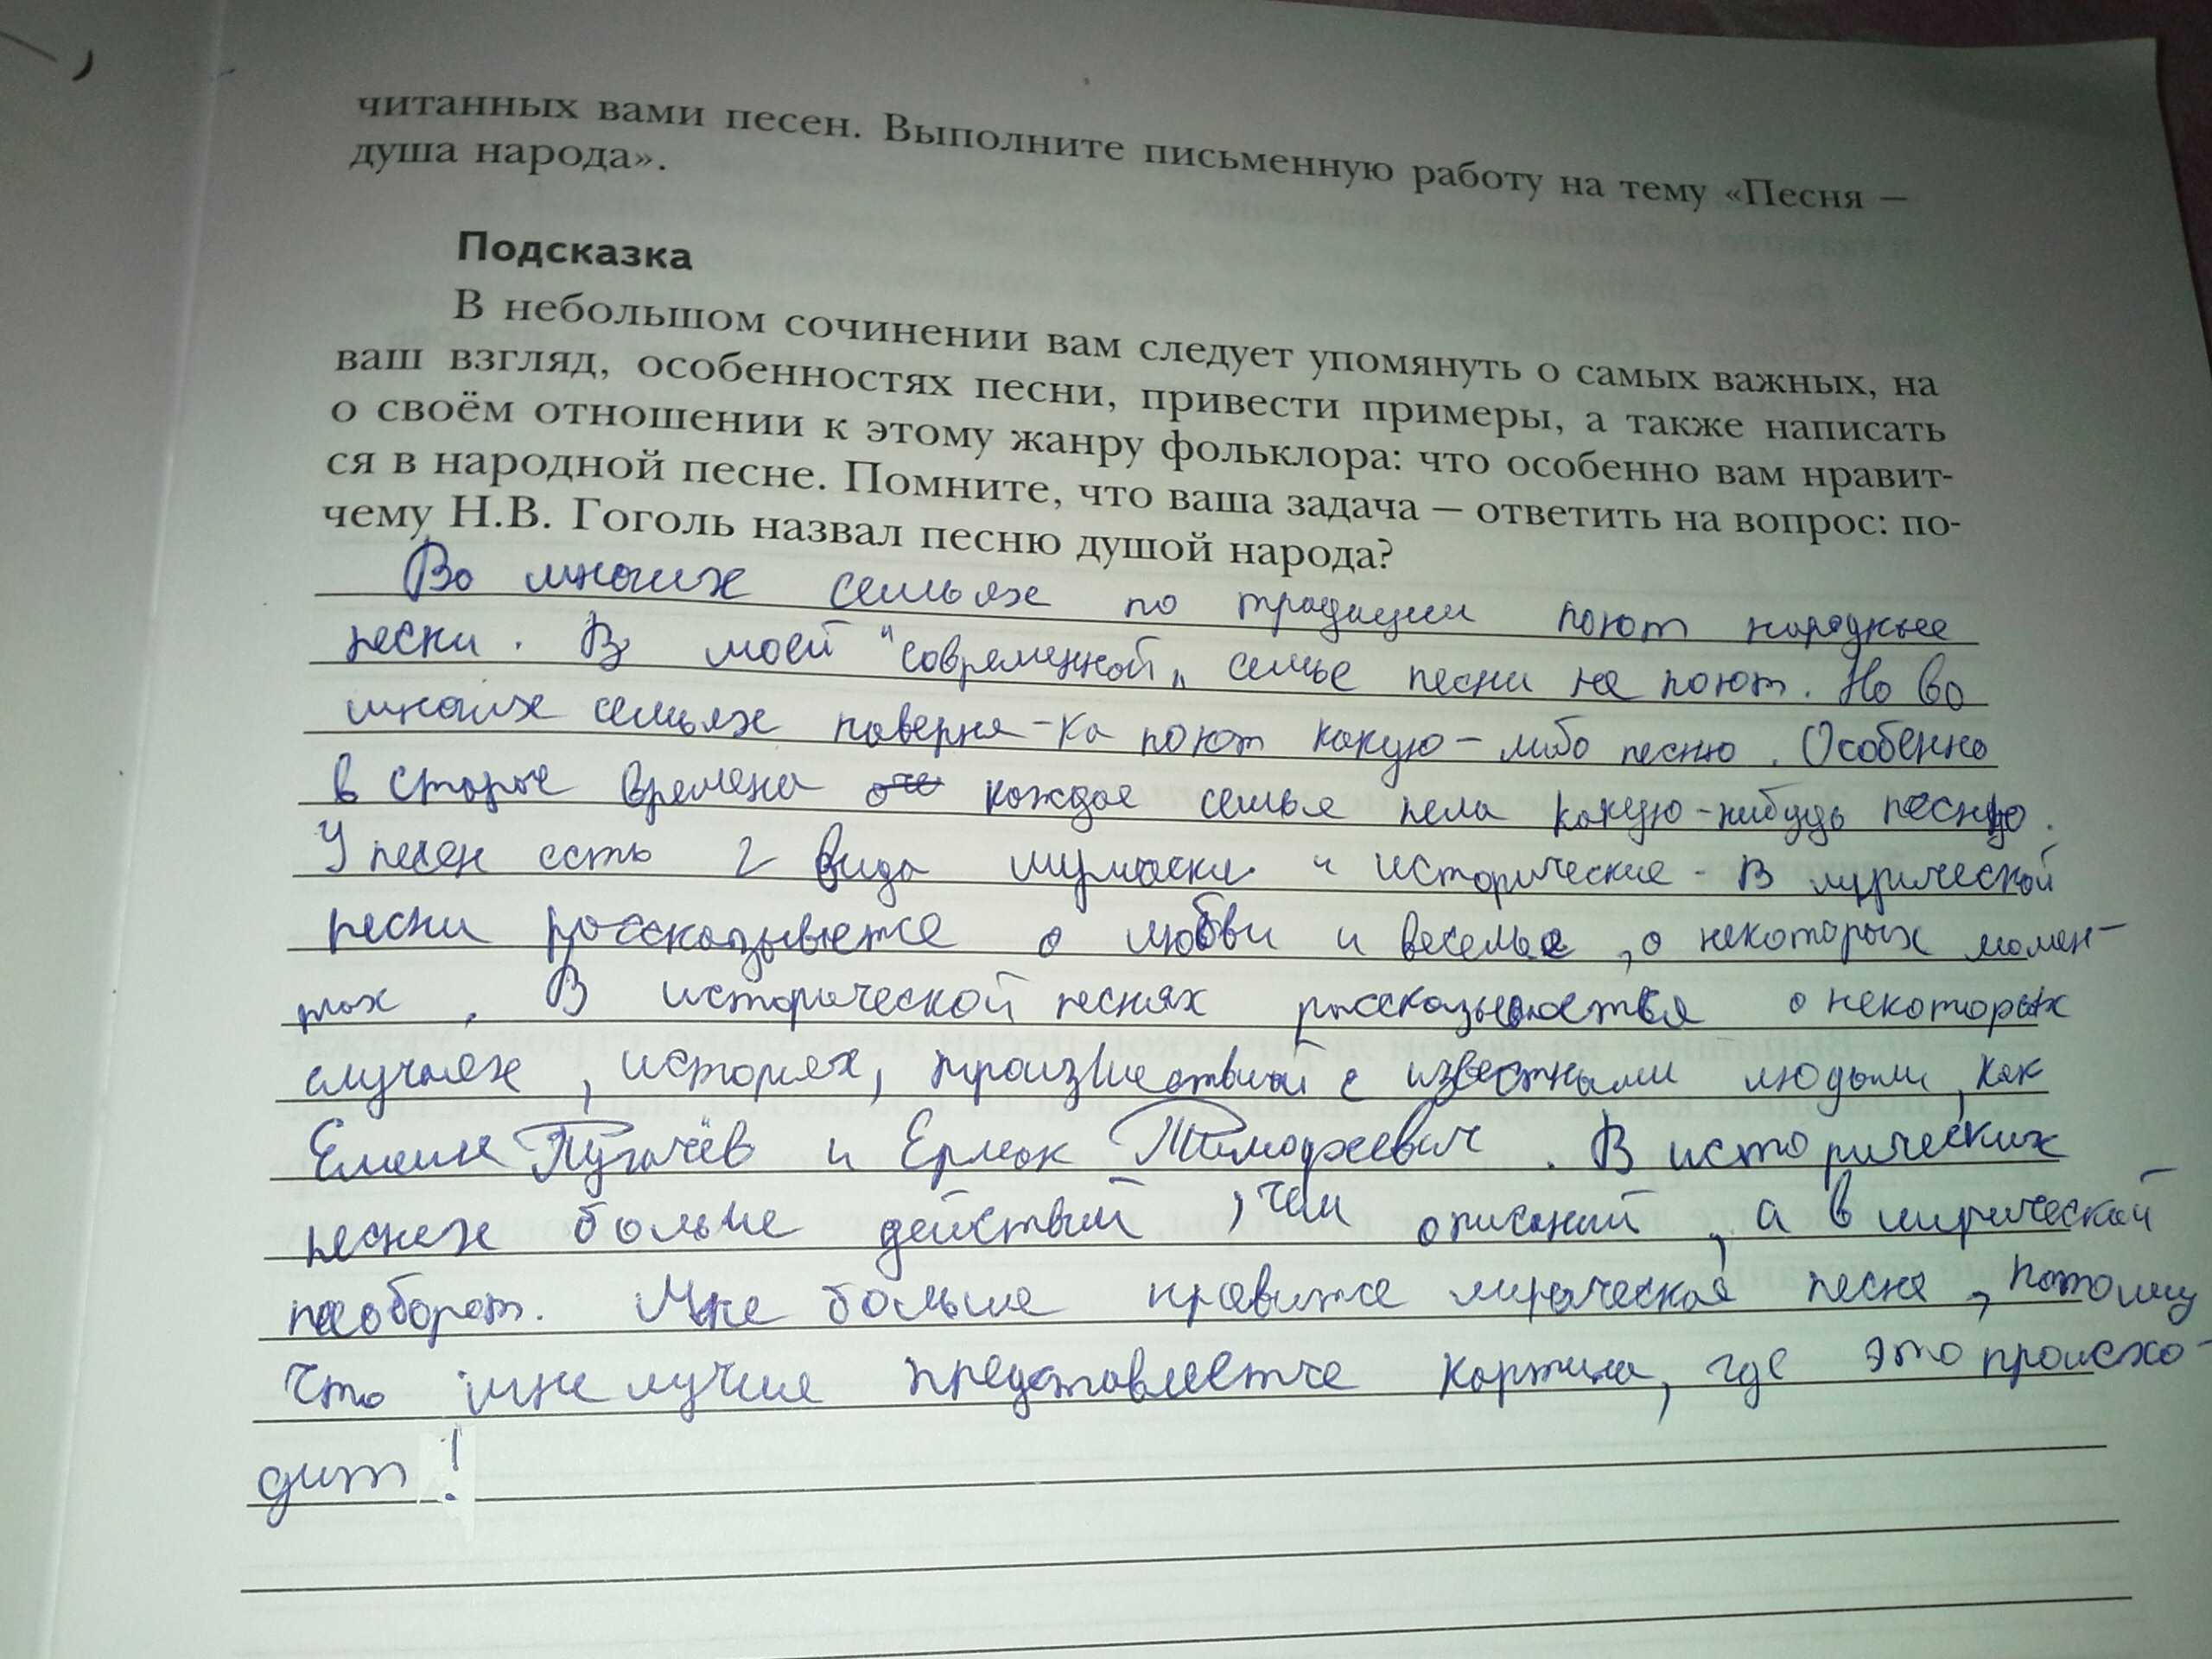 читанных вами песен. Выполните письменную работу на тему «Песня —
душа народа».
Подсказка
В небольшом сочинении вам следует упомянуть о самых важных, на
ваш взгляд, особенностях песни, привести примеры, а также написать
о своём отношении к этому жанру фольклора: что особенно вам нравит-
ся в народной песне. Помните, что ваша задача — ответить на вопрос: по-
чему Н.В. Гоголь назвал песню душой народа?
Во многих семьях по традиции поют народные
песни. В моей "современной„ семье песни не поют. Но во
многих семьях наверня-ка поют какую-либо песню. Особенно
в старые времена каждая семья пела какую-нибудь песню.
У песен есть 2 вида и исторические. В лирической
песни рассказывается о любви и веселье, о некоторых момен-
тах. В исторической песнях рассказывается о некоторых
случаях, историях, произшествий с известными людьми, как
Емельян Пугачёв и Ермак Тимофеевич. В исторических
песнях больше действий, чем описаний, а в лирической
наоборот. Мне больше нравится лирическая песня, потому
что мне лучше представляется картина, где это происхо-
дит!